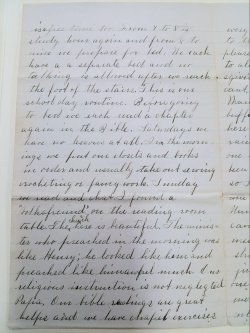 is free time to. From 7 to 8 is
study hour again and from 8 to
nine we prepare for bed. We each
have a a separate bed and no
talking is allowed after we reach
the foot of the stairs. This is our
school day routine. Before going
to bed we each read a chapter
again in the Bible. Saturdays we
have no lessons at all. In the morn-
ings we put our closets and books
in order and usually take out sewing
or fancy work. Sunday
is read and what I found a
on the reading room
table. The here is beautiful. The minis-
ter who preached in the morning was
like Henry; he looked like him and
preached like him much. Our
religious instruction is not neglected
Papa. Our bible readings are great
helps and we have chapel exercises